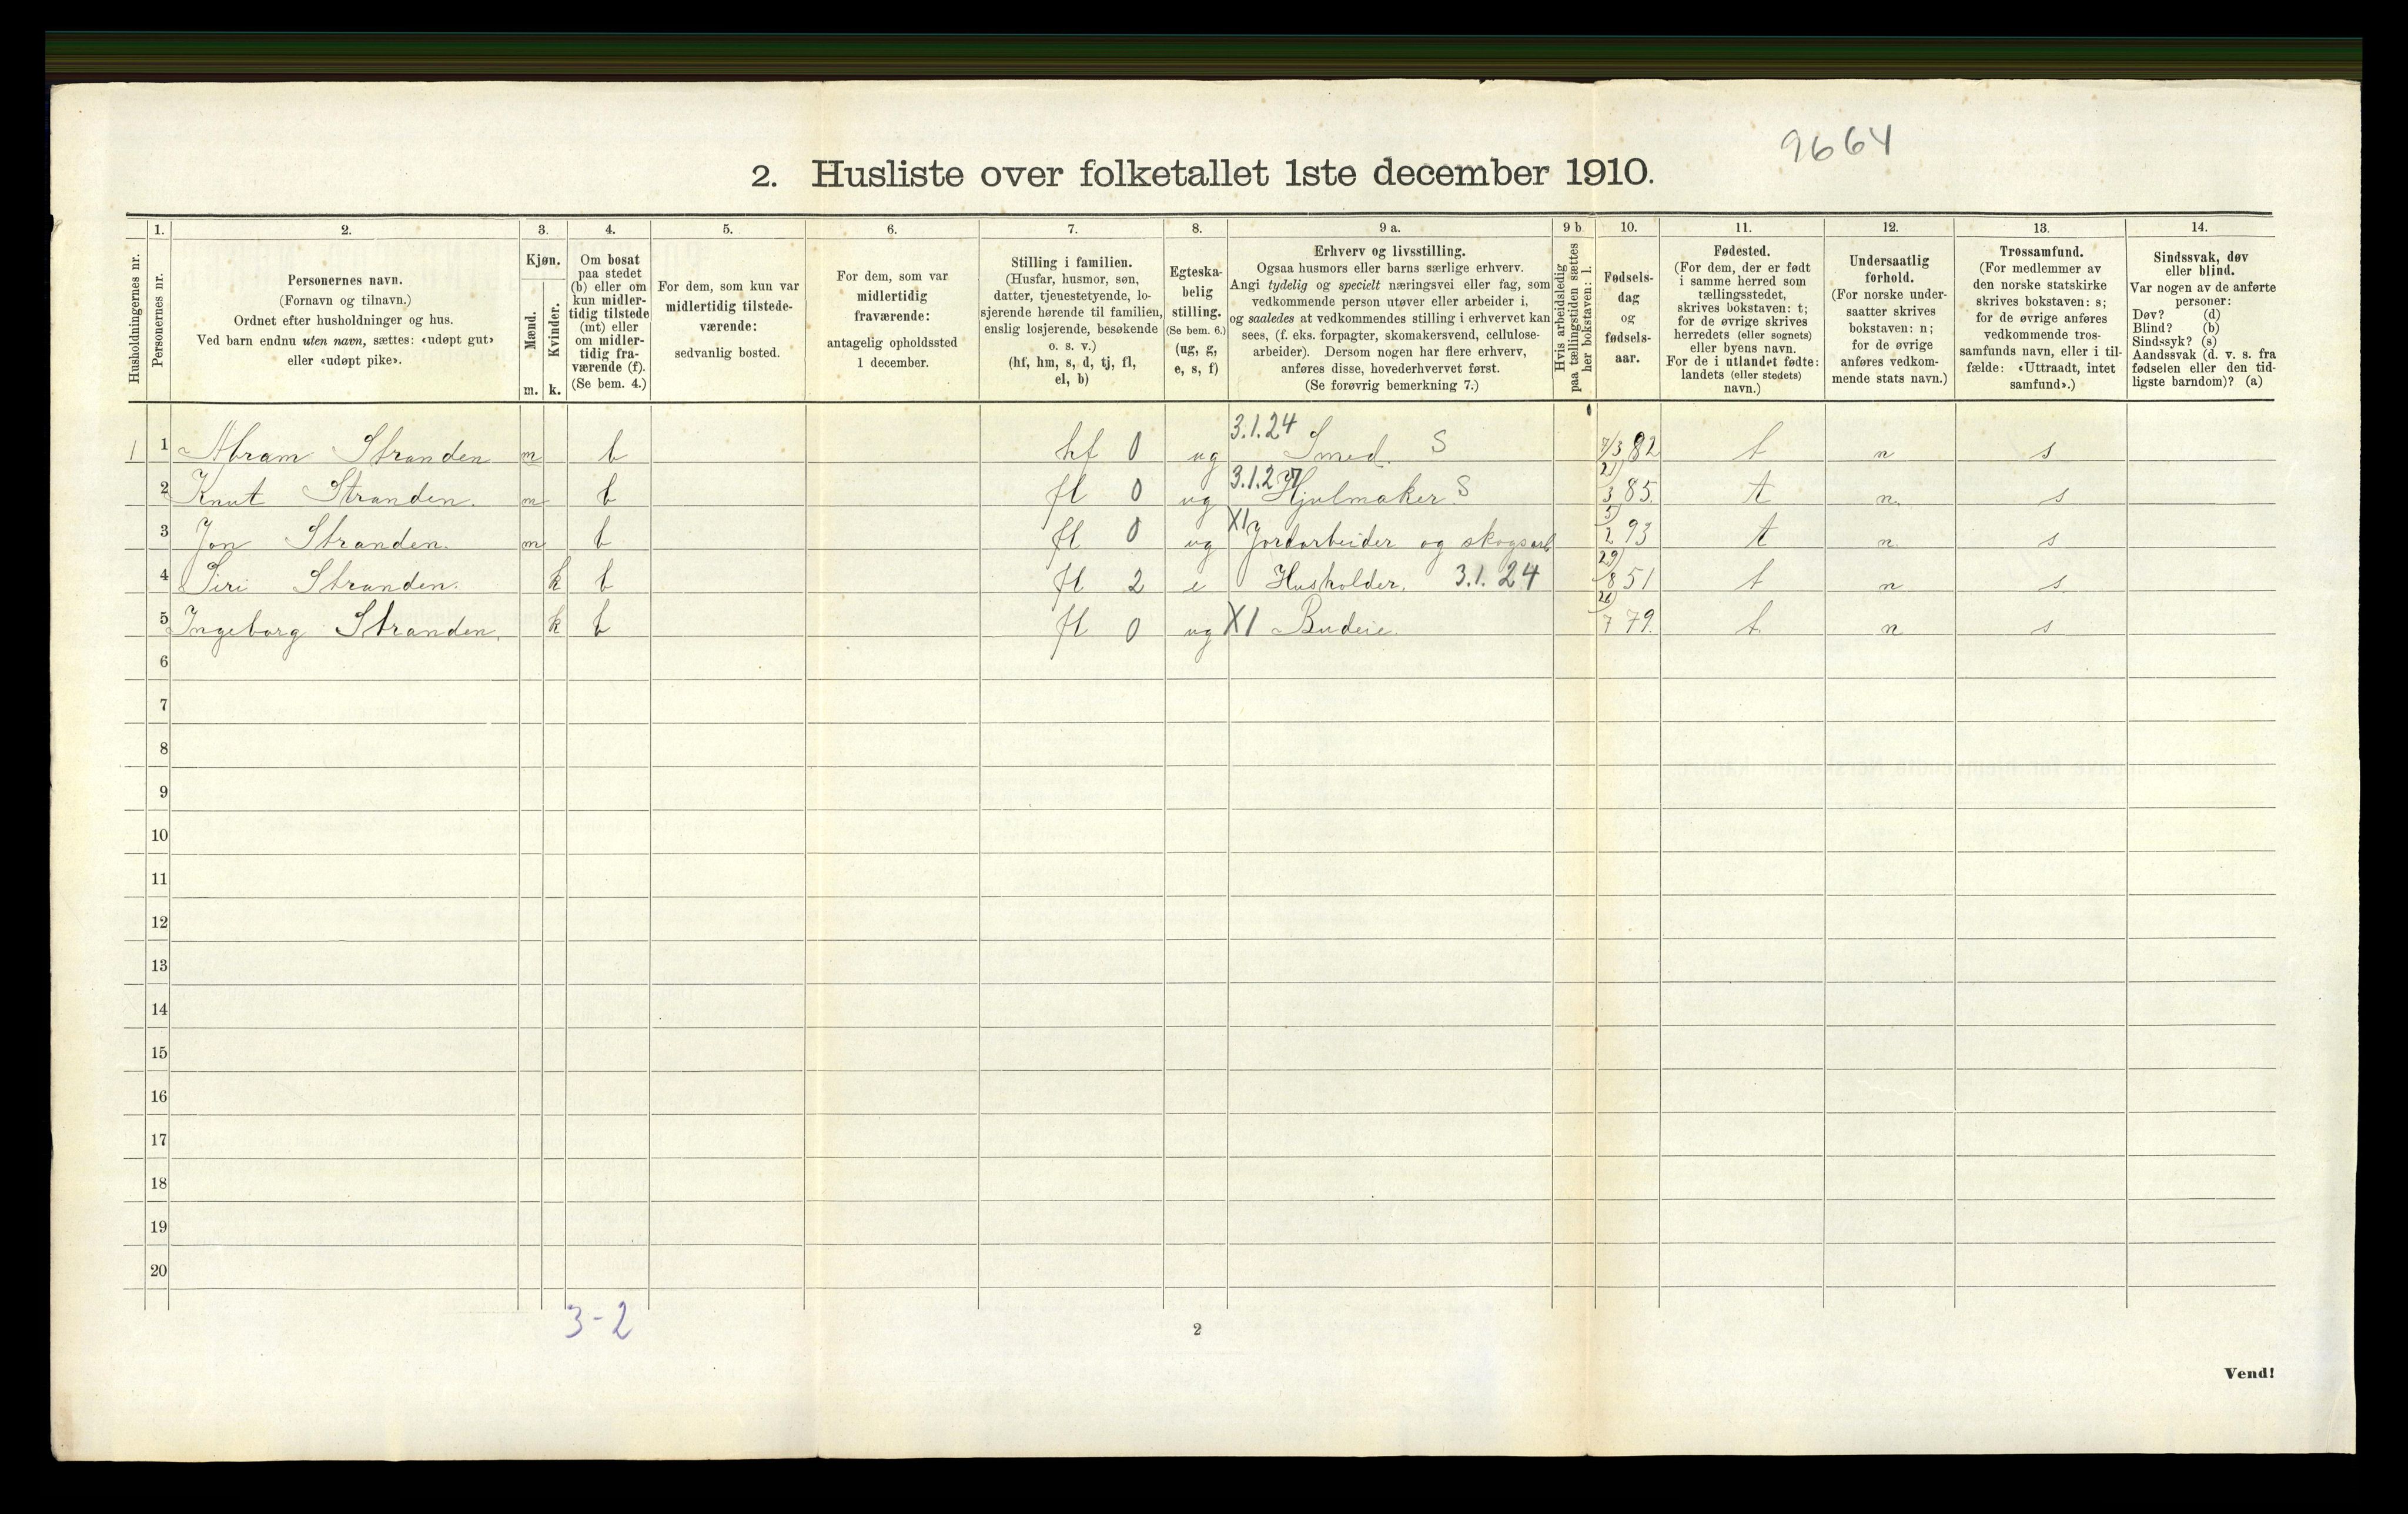 9664
2. Husliste over folketallet 1ste december 1910.
Husholdningernes nr.
1.
Personernes nr.
2.
Personernes navn.
(Fornavn og tilnavn.)
Ordnet efter husholdninger og hus.
Ved barn endnu uten navn, sættes: «udøpt gut»
eller «udøpt pike».
3.
Kjøn.
Mænd.
m.
Kvinder.
k.
4.
Om bosat
paa stedet
(b) eller om
kun midler-
tidig tilstede
(mt) eller
om midler-
tidig fra-
værende (f).
(Se bem. 4.)
5.
For dem, som kun var
midlertidig tilstede-
værende:
sedvanlig bosted.
6.
For dem, som var
midlertidig
fraværende:
antagelig opholdssted
1 december.
7.
Stilling i familien.
(Husfar, husmor, søn,
datter, tjenestetyende, lo-
sjerende hørende til familien,
enslig losjerende, besøkende
o. s. v.)
(hf, hm, s, d, tj, fl,
el, b)
8.
Egteska-
belig
stilling.
(Se bem. 6.)
(ug, g,
e, s, f)
9 a.
Erhverv og livsstilling.
Ogsaa husmors eller barns særlige erhverv.
Angi tydelig og specielt næringsvei eller fag, som
vedkommende person utøver eller arbeider i,
og saaledes at vedkommendes stilling i erhvervet kan
sees, (f. eks. forpagter, skomakersvend, cellulose-
arbeider). Dersom nogen har flere erhverv,
anføres disse, hovederhvervet først.
(Se forøvrig bemerkning 7.)
9 b.
Hvis arbeidsledig
paa tællingstiden sættes
her bokstaven: l.
10.
Fødsels-
dag
og
fødsels-
aar.
11.
Fødested.
(For dem, der er født
i samme herred som
tællingsstedet,
skrives bokstaven: t;
for de øvrige skrives
herredets (eller sognets)
eller byens navn.
For de i utlandet fødte:
landets (eller stedets)
navn.)
12.
Undersaatlig
forhold.
(For norske under-
saatter skrives
bokstaven: n;
for de øvrige
anføres vedkom-
mende stats navn.)
13.
Trossamfund.
(For medlemmer av
den norske statskirke
skrives bokstaven: s;
for de øvrige anføres
vedkommende tros-
samfunds navn, eller i til-
fælde: «Uttraadt, intet
samfund».)
14.
Sindssvak, døv
eller blind.
Var nogen av de anførte
personer:
Døv? (d)
Blind? (b)
Sindssyk? (s)
Aandssvak (d. v. s. fra
fødselen eller den tid-
ligste barndom)? (a)
1 1 Abram Stranden m b hf 0 ug 3.1.24 Smed. S 7/3 82 t n s
2 Knut Stranden. m b fl 0 ug 3.1.27 Hjulmaker S 21/3 85. t n. s
3 Jon Stranden. m b fl 0 ug XI Jordarbeider og skogsarb 5/2 93 t n. s
4 Siri Stranden. k b fl 2 e Husholder. 3.1.24 29/8 51 t n s.
5 Ingeborg Stranden. k b fl 0 ug XI Budeie. 26/7 79. t. n s
6
7
8
9
10
11
12
13
14
15
16
17
18
19
20
3-2
2
Vend!